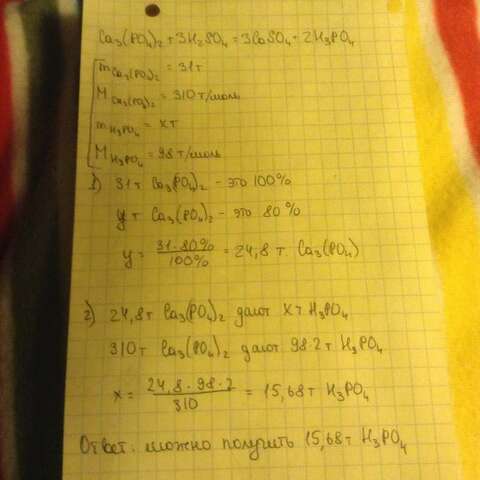 Ca₃(PO₄)₂ + 3H₂SO₄ = 3CaSO₄ + 2H₃PO₄
m Ca₃(PO₄)₂ = 31т
M Ca₃(PO₄)₂ = 310 т/моль
m H₃PO₄ = x т
M H₃PO₄ = 98 т/моль
1) 31т Ca₃(PO₄)₂ - это 100%
y т Ca₃(PO₄)₂ - это 80%
y = 31·80% / 100% = 24,8 т Ca₃(PO₄)
2) 24,8т Ca₃(PO₄)₂ дают x т H₃PO₄
310 т Ca₃(PO₄)₂ дают 98·2 т H₃PO₄
x = 24,8·98·2 / 310 = 15,68 т H₃PO₄
Ответ: можно получить 15,68т H₃PO₄